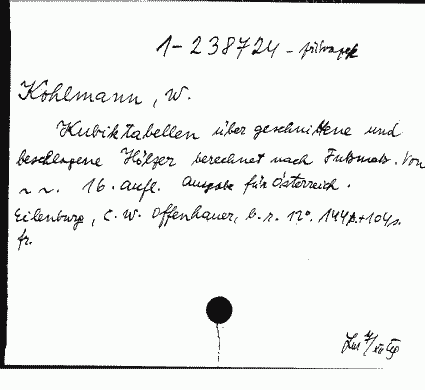 1-238724 -
Kohlmann, W.
Kubiktabellen über geschnittene und
beschlagene Hölzer berechnet nach Fußmaß. Von
~ ~. 16. Aufl. Ausgabe für Österreich.
Eilenburg, C. W. Offenhauer, b. r. 12°. 144p.+104p.
fr.